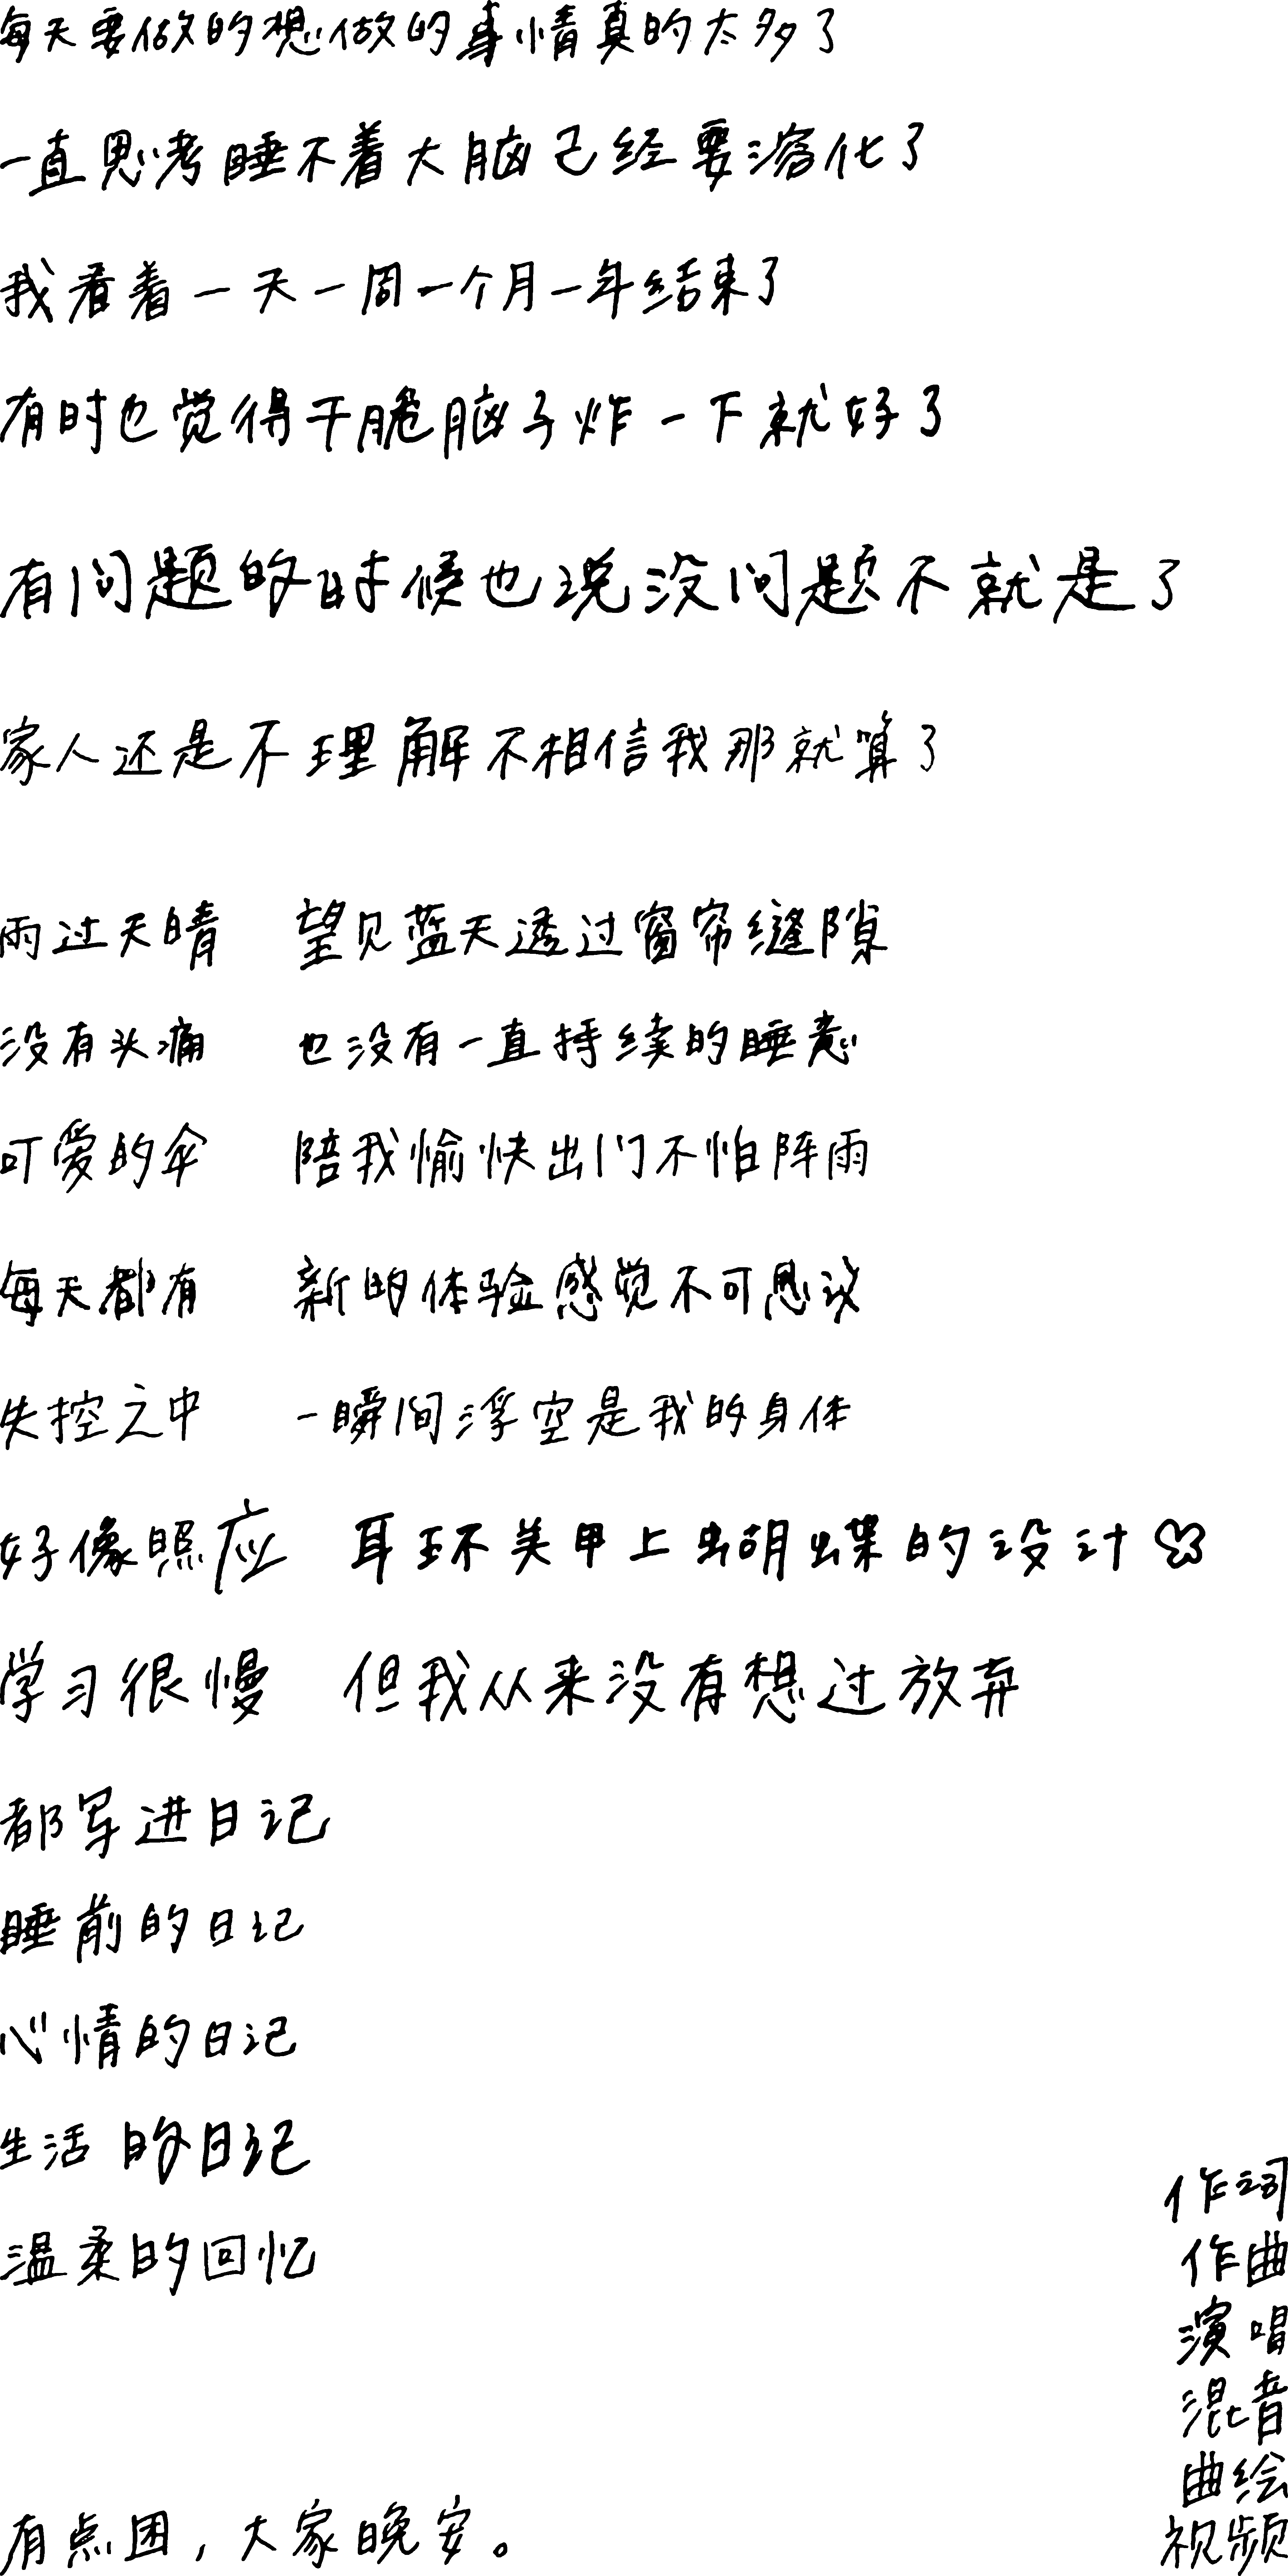 每天要做的想做的事情真的太多了
一直思考睡不着大脑已经要溶化了
我看着一天一周一个月一年结束了
有时也觉得干脆脑子炸一下就好了
有问题的时候也说没问题不就是了
家人还是不理解不相信我那就算了
雨过天晴 望见蓝天透过窗帘缝隙
没有头痛 也没有一直持续的睡意
可爱的伞 陪我愉快出门不怕阵雨
每天都有 新的体验感觉不可思议
失控之中 一瞬间浮空是我的身体
好像照应 耳环美甲上蝴蝶的设计
学习很慢 但我从来没有想过放弃
都写进日记
睡前的日记
心情的日记
生活的日记
温柔的回忆
有点困，大家晚安。
作词
作曲
演唱
混音
曲绘
视频